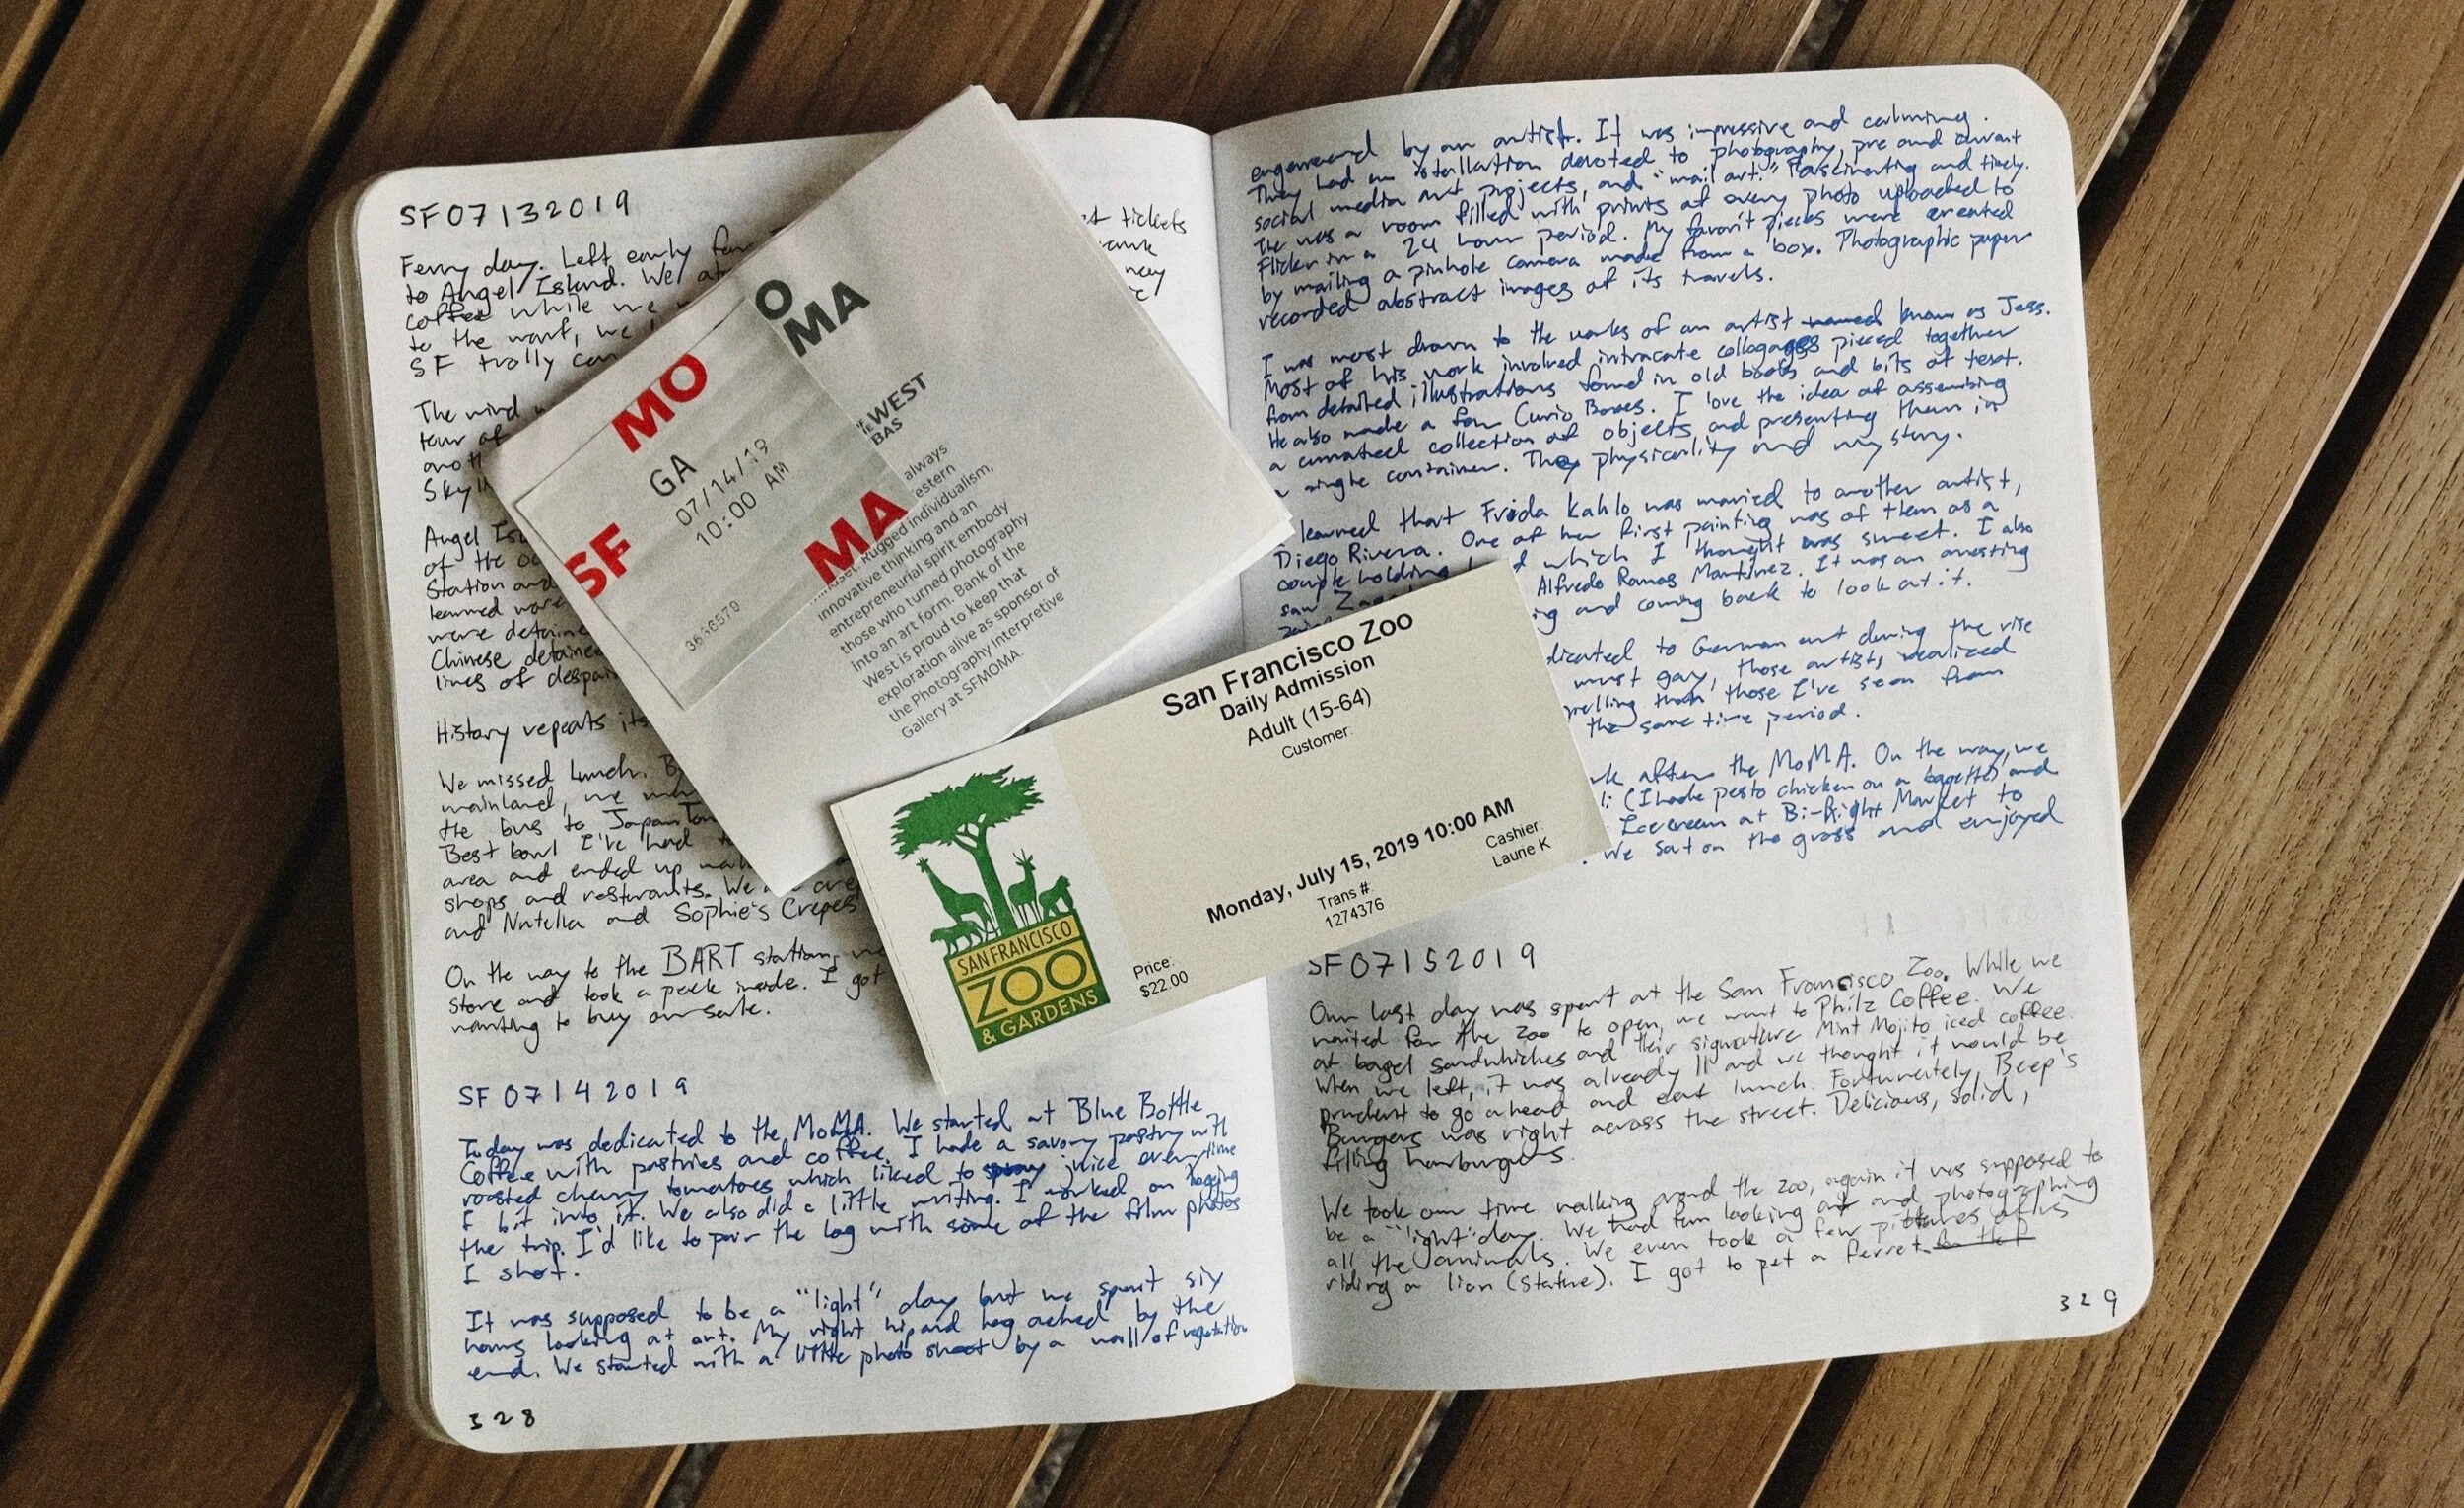 SF07132019
Ferry day. Left early for
to Angel Island. We at
coffee while we
to the warf, we
SF trolly car
t tickets
The wind
tour of
anoth
Sky
Angel Isl
of the
Station and
learned more
were detaine
Chinese detainee
lines of despair
History repeats its
We missed lunch. By
mainland, we
the bus to JapanTown
Best bowl I've had
area and ended up
shops and resturants. We
and Nutella and Sophie's Crepes
On the way to the BART station, we
store and took a peek inside. I got
wanting to buy
SF 07142019
Today was dedicated to the MoMA. We started at Blue Bottle
Coffee with pastries and coffee. I hade a savory pastry with
roasted cherry tomatoes which liked to spray juice everytime
I bit into it. We also did a little writing. I worked on logging
the trip. I'd like to pair the log with some of the film photos
I shot.
It was supposed to be a "light" day but we spent six
hours looking at art. My right hip and leg ached by the
end. We started with a little photo shoot by a wall of vegetation
328
O
MA
WEST
BAS
always
estern
Rugged individualism,
innovative thinking and an
entrepreneurial spirit embody
those who turned photography
into an art form. Bank of the
West is proud to keep that
exploration alive as sponsor of
the Photography Interpretive
Gallery at SFMOMA.
MO
GA
07/14/19
10:00 AM
SF
MA
3636570
San Francisco Zoo
Daily Admission
Adult (15-64)
Customer:
Monday, July 15, 2019 10:00 AM
Trans #:
1274376
Cashier:
Laurie K
Price:
$22.00
SAN FRANCISCO
ZOO
& GARDENS
by an artist. It was impressive and calming.
They had an installation devoted to photography, pre and durant
social media art projects, and "mail art." Fascinating and timely.
The was a room filled with prints of every photo uploaded to
Flickr in a 24 hour period. My favorit pieces were created
by mailing a pinhole camera made from a box. Photographic paper
recorded abstract images of its travels.
I was most drawn to the works of an artist named known as Jess.
Most of his work involved intracate collogages pieced together
from detailed illustrations found in old books and bits of text.
He also made a few Curio Boxes. I love the idea of assembing
a curated collection of objects and presenting them in
a single container. The physicality and mystory.
I learned that Frida Kahlo was married to another artist,
Diego Rivera. One of her first painting was of them as a
couple holding which I thought was sweet. I also
saw Alfredo Ramos Martinez. It was an arresting
and coming back to look at it.
dicated to German art during the rise
most gary, those artists realized
pelling than those I've seen from
the same time period.
after the MoMA. On the way, we
(I hade pesto chicken on a bagette) and
Icecream at Bi-Right Market to
. We sat on the grass and enjoyed
SF07152019
Our last day was spent at the San Francisco Zoo. While we
waited for the zoo to open, we went to Philz Coffee. We
at bagel sandwhiches and their signature Mint Mojito iced coffee.
When we left, it was already 11 and we thought it would be
prudent to go ahead and eat lunch. Fortunately, Beep's
Burgers was right across the street. Delicious, solid,
filling hamburgers.
We took our time walking around the zoo, again it was supposed to
be a "light" day. We had fun looking at and photographing
all the animals. We even took a few pictures of us
riding a lion (statue). I got to pet a ferret
329